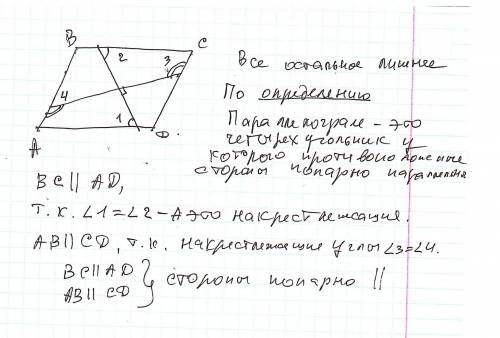 B
C
2
3
4
1
A
D
Все остальное лишнее
По определению
Параллелограм - это
четырехугольник у
которого противоположные
стороны попарно параллельны
BC || AD,
т.к. ∠1=∠2 - а это накрестлежащие.
AB || CD, т.к. накрестлежащие углы ∠3=∠4.
BC || AD
AB || CD } стороны попарно ||